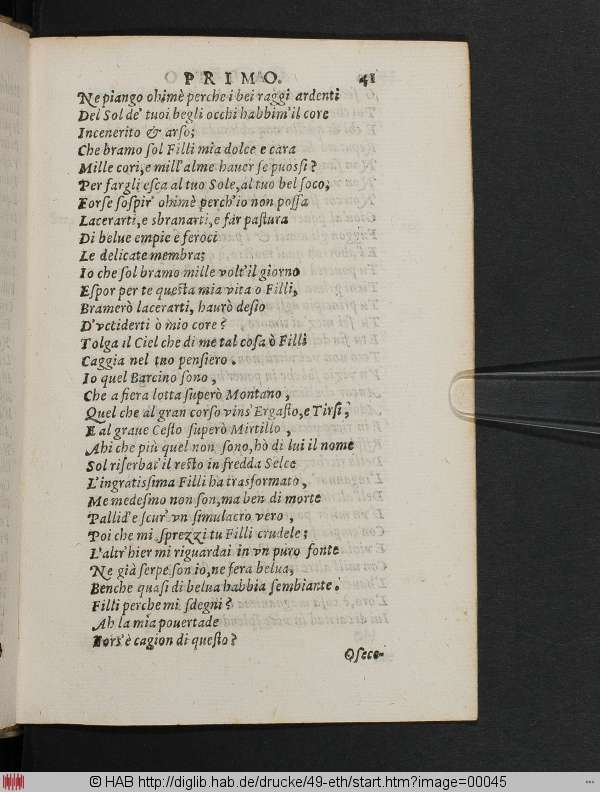 PRIMO. 41
Ne piango ohimè perche i bei raggi ardenti
Del Sol de' tuoi begli occhi habbim'il core
Incenerito & arso;
Che bramo sol Filli mia dolce e cara
Mille cori, e mill'alme hauer se puossi?
Per fargli esca al tuo Sole, al tuo bel foco;
Forse sospir' ohimè perch'io non possa
Lacerarti, e sbranarti, e far pastura
Di belue empie e feroci
Le delicate membra;
Io che sol bramo mille volt'il giorno
Espor per te questa mia vita o Filli,
Bramerò lacerarti, haurò desio
D'vcciderti ò mio core?
Tolga il Ciel che di me tal cosa ò Filli
Caggia nel tuo pensiero.
Io quel Barcino sono,
Che a fiera lotta superò Montano,
Quel che al gran corso vins' Ergasto, e Tirsi,
E al graue Cesto superò Mirtillo,
Ahi che più quel non sono, hò di lui il nome
Sol riserbat'il resto in fredda Selce
L'ingratissima Filli ha trasformato,
Me medesimo non son, ma ben di morte
Pallid'e scur' vn simulacro vero,
Poi che mi sprezzi tu Filli crudele;
L'altr'hier mi riguardai in vn puro fonte
Ne già serpe son io, ne fera belua,
Benche quasi di belua habbia sembiante.
Filli perche mi sdegni?
Ah la mia pouertade
Fors'è cagion di questo?
O sece-
© HAB http://diglib.hab.de/drucke/49-eth/start.htm?image=00045